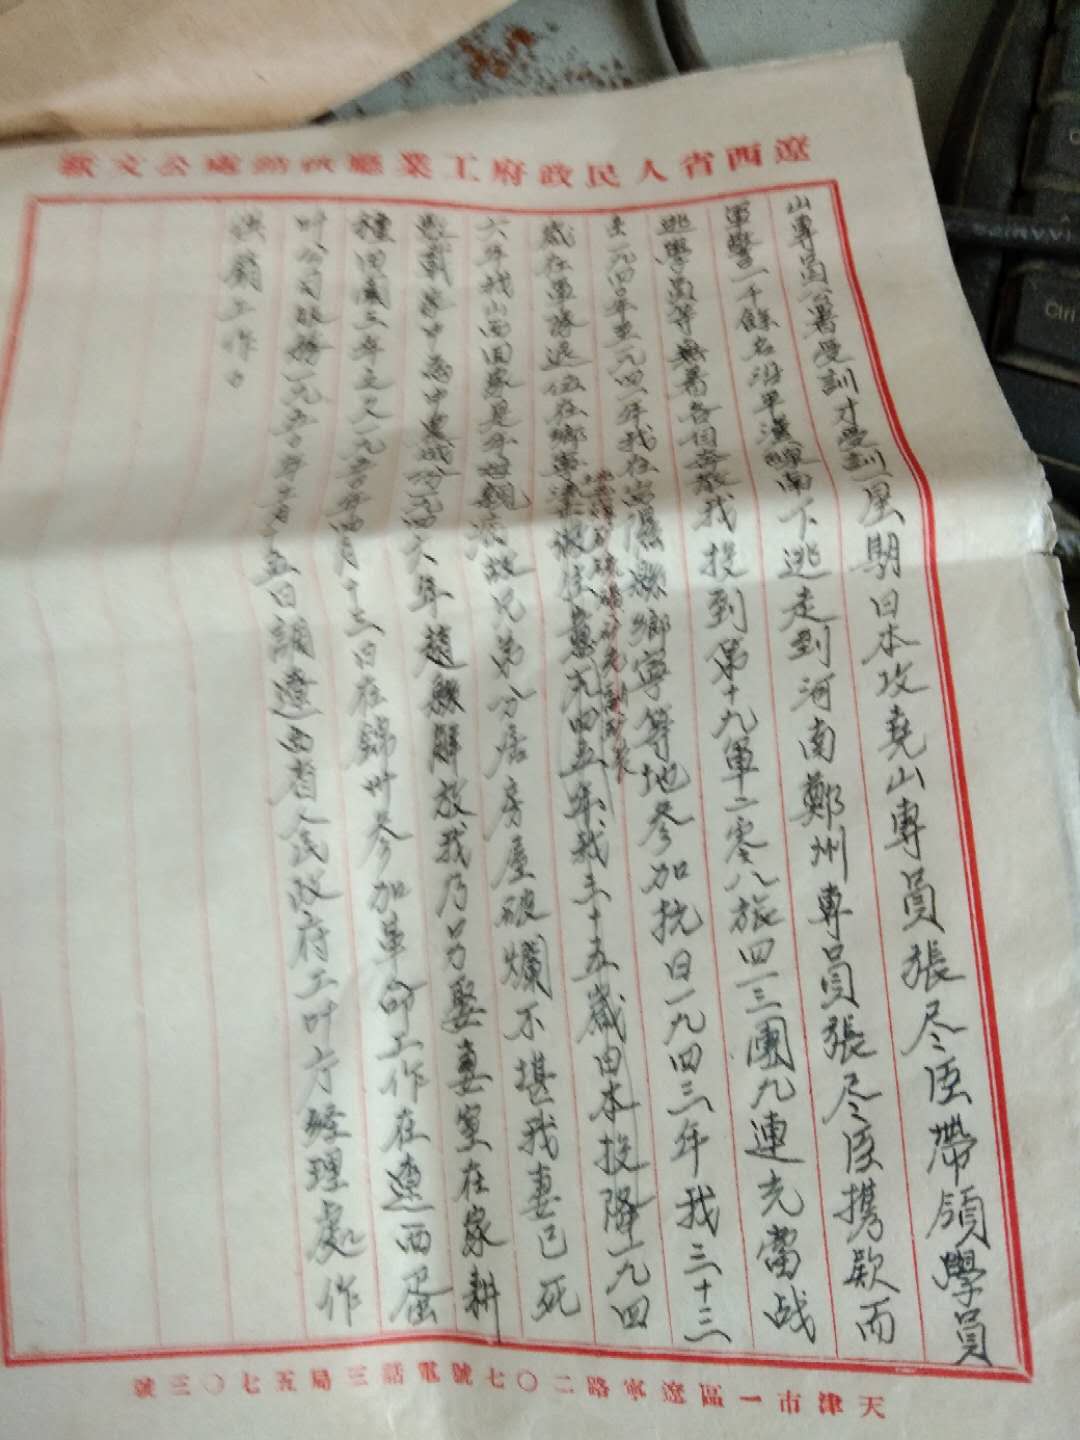 遼西省人民政府工業廳供銷處公文紙
山專員公署受訓才受訓一星期日本攻堯山專員張尽臣帶領學員
軍警一千餘名沿平漢線南下逃走到河南鄭州專員張尽臣携欵而
逃學員等無着各自奔散我投到第十九軍二零八旅四一三團九連充當战
士一九四〇年至一九四一年我在隰縣鄉寧等地參加抗日一九四三年我三十三
歲在軍隊退伍在鄉寧四五年我三十五歲日本投降一九四
六年我山西回家是年母親病故兄弟分居房屋破爛不堪我妻已死
家中為中農成分一九四六年趙縣解放我乃另娶妻室在家耕
種田園三年之久一九五〇年四月十三日在錦州參加革命工作在遼西蛋
叶公司服務一九五〇年十五日調遼西省人民政府工叶厅經理處作
供銷工作。
天津市一區遼寧路二〇七號電話三局五七〇三號